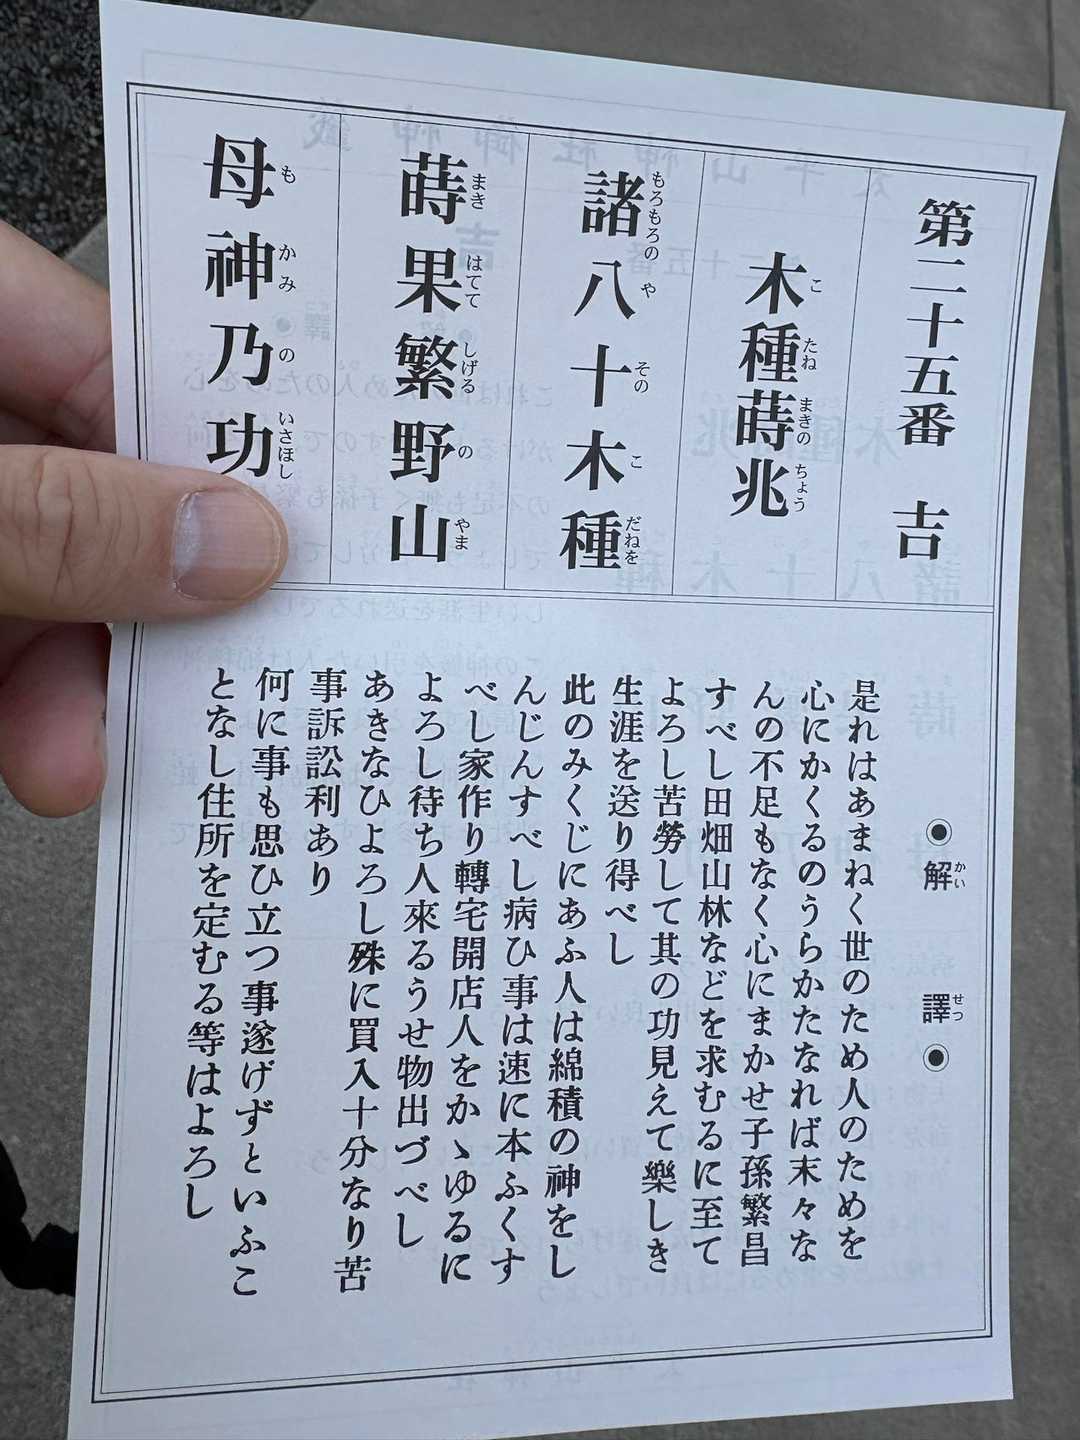 第二十五番　吉
木種蒔兆
こ たね まきの ちょう
諸八十木種
もろもろの や その こ だねを
蒔果繁野山
まき はてて しげる の やま
母神乃功
も かみ の いさほし
◉解譯◉
かい せつ
是れはあまねく世のため人のためを
心にかくるのうらかたなれば末々な
んの不足もなく心にまかせ子孫繁昌
すべし田畑山林などを求むるに至て
よろし苦勞して其の功見えて樂しき
生涯を送り得べし
此のみくじにあふ人は綿積の神をし
んじんすべし病ひ事は速に本ふくす
べし家作り轉宅開店人をかゝゆるに
よろし待ち人來るうせ物出づべし
あきなひよろし殊に買入十分なり苦
事訴訟利あり
何に事も思ひ立つ事遂げずといふこ
となし住所を定むる等はよろし